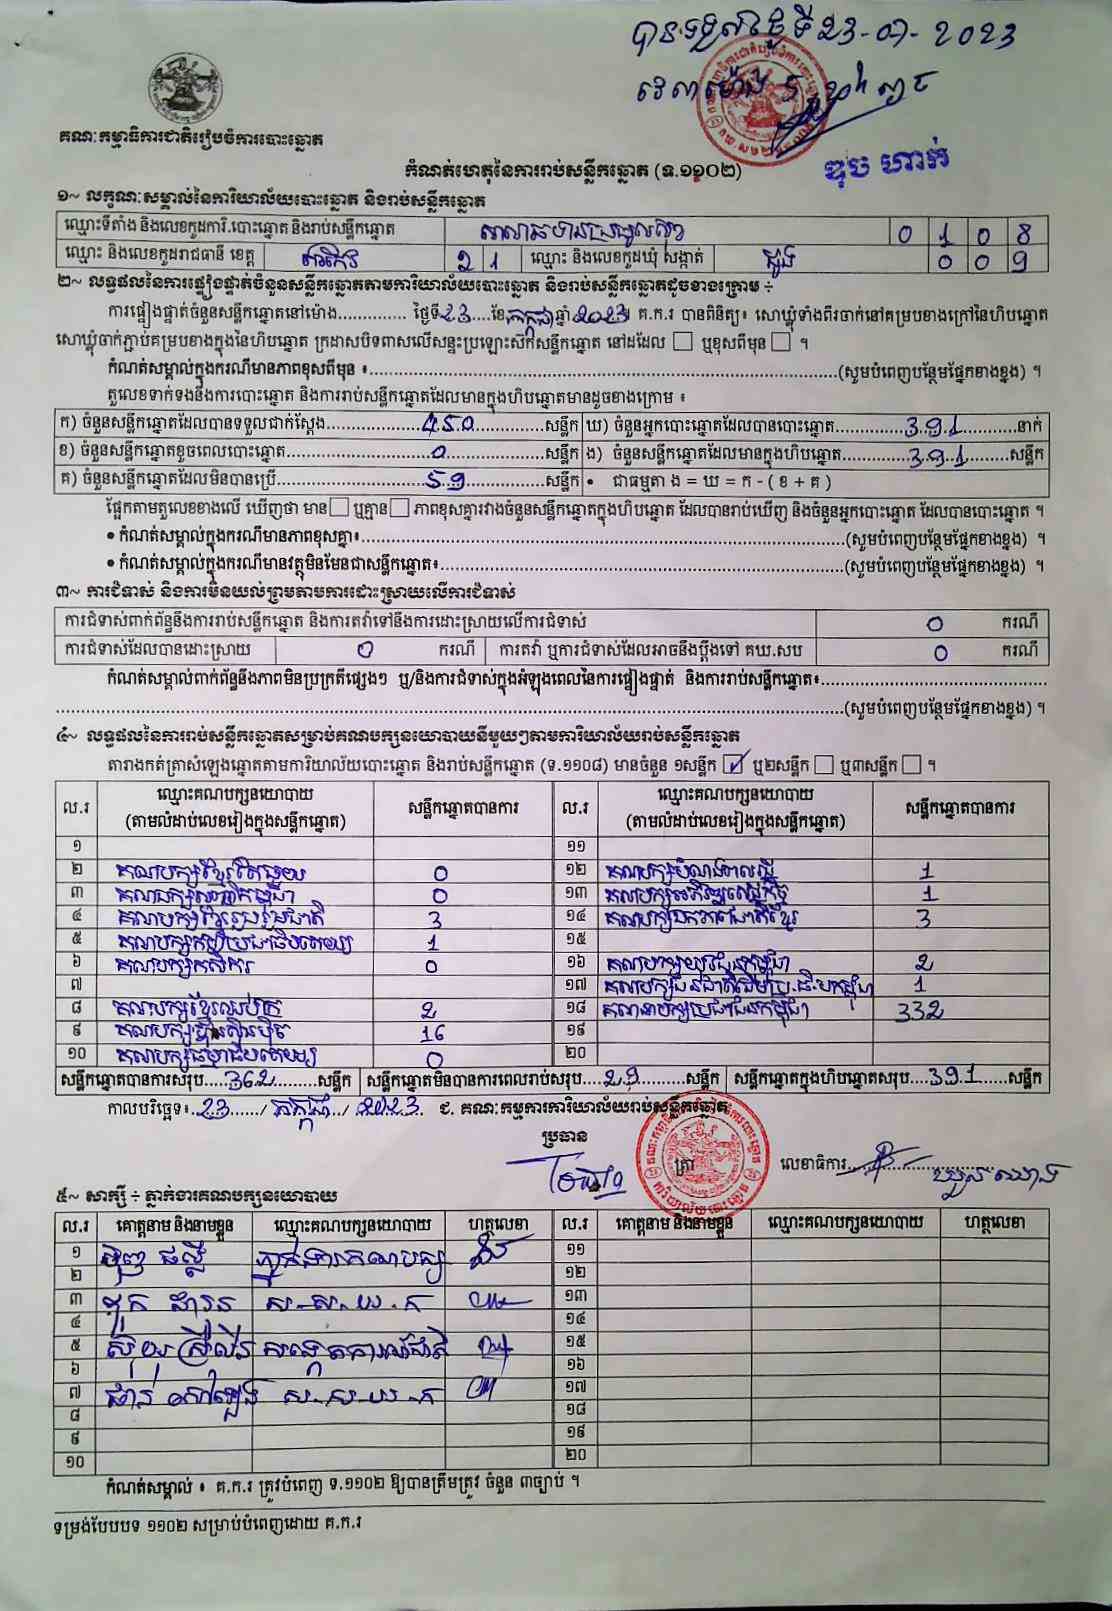 បានទទួលថ្ងៃទី 23-07-2023
គណៈកម្មាធិការជាតិរៀបចំការបោះឆ្នោត
កំណត់ហេតុនៃការរាប់សន្លឹកឆ្នោត (ទ.១១០២)
១~ លក្ខណៈសម្គាល់នៃការិយាល័យបោះឆ្នោត និងរាប់សន្លឹកឆ្នោត
ឈ្មោះទីតាំង និងលេខកូដការិ.បោះឆ្នោត និងរាប់សន្លឹកឆ្នោត 0 1 0 8
ឈ្មោះ និងលេខកូដរាជធានី ខេត្ត តាកែវ 2 1 ឈ្មោះ និងលេខកូដឃុំ សង្កាត់ 0 0 9
២~ លទ្ធផលនៃការផ្ទៀងផ្ទាត់ចំនួនសន្លឹកឆ្នោតតាមការិយាល័យបោះឆ្នោត និងរាប់សន្លឹកឆ្នោតដូចខាងក្រោម ÷
ការផ្ទៀងផ្ទាត់ចំនួនសន្លឹកឆ្នោតនៅម៉ោង.............. ថ្ងៃទី 23 ខែ កក្កដា ឆ្នាំ 2023 គ.ក.រ បានពិនិត្យ៖ សោឃ្លុំទាំងពីរចាក់នៅគម្របខាងក្រៅនៃហិបឆ្នោត
សោឃ្លុំចាក់ភ្ជាប់គម្របខាងក្នុងនៃហិបឆ្នោត ក្រដាសបិទពាសលើសន្ទះប្រឡោះស៊កសន្លឹកឆ្នោត នៅដដែល ☐ ឬខុសពីមុន ☐ ។
កំណត់សម្គាល់ក្នុងករណីមានភាពខុសពីមុន ៖..............(សូមបំពេញបន្ថែមផ្នែកខាងខ្នង) ។
តួលេខទាក់ទងនឹងការបោះឆ្នោត និងការរាប់សន្លឹកឆ្នោតដែលមានក្នុងហិបឆ្នោតមានដូចខាងក្រោម ៖
ក) ចំនួនសន្លឹកឆ្នោតដែលបានទទួលជាក់ស្តែង 450 សន្លឹក ឃ) ចំនួនអ្នកបោះឆ្នោតដែលបានបោះឆ្នោត 391 នាក់
ខ) ចំនួនសន្លឹកឆ្នោតខូចពេលបោះឆ្នោត 0 សន្លឹក ង) ចំនួនសន្លឹកឆ្នោតដែលមានក្នុងហិបឆ្នោត 391 សន្លឹក
គ) ចំនួនសន្លឹកឆ្នោតដែលមិនបានប្រើ 59 សន្លឹក • ជាធម្មតា ង = ឃ = ក - ( ខ + គ )
ផ្អែកតាមតួលេខខាងលើ ឃើញថា មាន ☐ ឬគ្មាន ☐ ភាពខុសគ្នារវាងចំនួនសន្លឹកឆ្នោតក្នុងហិបឆ្នោត ដែលបានរាប់ឃើញ និងចំនួនអ្នកបោះឆ្នោត ដែលបានបោះឆ្នោត ។
• កំណត់សម្គាល់ក្នុងករណីមានភាពខុសគ្នា៖..............(សូមបំពេញបន្ថែមផ្នែកខាងខ្នង) ។
• កំណត់សម្គាល់ក្នុងករណីមានវត្ថុមិនមែនជាសន្លឹកឆ្នោត៖..............(សូមបំពេញបន្ថែមផ្នែកខាងខ្នង) ។
៣~ ការជំទាស់ និងការមិនយល់ព្រមតាមការដោះស្រាយលើការជំទាស់
ការជំទាស់ពាក់ព័ន្ធនឹងការរាប់សន្លឹកឆ្នោត និងការតវ៉ាទៅនឹងការដោះស្រាយលើការជំទាស់ 0 ករណី
ការជំទាស់ដែលបានដោះស្រាយ 0 ករណី ការតវ៉ា ឬការជំទាស់ដែលអាចនឹងប្តឹងទៅ គឃ.សប 0 ករណី
កំណត់សម្គាល់ពាក់ព័ន្ធនឹងភាពមិនប្រក្រតីផ្សេងៗ ឬ/និងការជំទាស់ក្នុងអំឡុងពេលនៃការផ្ទៀងផ្ទាត់ និងការរាប់សន្លឹកឆ្នោត៖..............
..............(សូមបំពេញបន្ថែមផ្នែកខាងខ្នង) ។
៤~ លទ្ធផលនៃការរាប់សន្លឹកឆ្នោតសម្រាប់គណបក្សនយោបាយនីមួយៗតាមការិយាល័យរាប់សន្លឹកឆ្នោត
តារាងកត់ត្រាសំឡេងឆ្នោតតាមការិយាល័យបោះឆ្នោត និងរាប់សន្លឹកឆ្នោត (ទ.១១០៨) មានចំនួន ១សន្លឹក ☑ ឬ២សន្លឹក ☐ ឬ៣សន្លឹក ☐ ។
ល.រ ឈ្មោះគណបក្សនយោបាយ (តាមលំដាប់លេខរៀងក្នុងសន្លឹកឆ្នោត) សន្លឹកឆ្នោតបានការ ល.រ ឈ្មោះគណបក្សនយោបាយ (តាមលំដាប់លេខរៀងក្នុងសន្លឹកឆ្នោត) សន្លឹកឆ្នោតបានការ
១ ១១
២ គណបក្សខ្មែរតែមួយ 0 ១២ 1
៣ 0 ១៣ 1
៤ គណបក្សខ្មែររួបរួមជាតិ 3 ១៤ គណបក្សឯកភាពជាតិខ្មែរ 3
៥ 1 ១៥
៦ គណបក្សកសិករ 0 ១៦ គណបក្សយុវជនកម្ពុជា 2
៧ ១៧ 1
៨ គណបក្សខ្មែរឈប់ក្រ 2 ១៨ គណបក្សប្រជាជនកម្ពុជា 332
៩ គណបក្សហ៊្វុនស៊ិនប៉ិច 16 ១៩
១០ គណបក្សធម្មាធិបតេយ្យ 0 ២០
សន្លឹកឆ្នោតបានការសរុប 362 សន្លឹក សន្លឹកឆ្នោតមិនបានការពេលរាប់សរុប 29 សន្លឹក សន្លឹកឆ្នោតក្នុងហិបឆ្នោតសរុប 391 សន្លឹក
កាលបរិច្ឆេទ៖ 23 / កក្កដា / 2023 ជ. គណៈកម្មការការិយាល័យរាប់សន្លឹកឆ្នោត
ប្រធាន
ត្រា លេខាធិការ
៥~ សាក្សី ÷ ភ្នាក់ងារគណបក្សនយោបាយ
ល.រ គោត្តនាម និងនាមខ្លួន ឈ្មោះគណបក្សនយោបាយ ហត្ថលេខា ល.រ គោត្តនាម និងនាមខ្លួន ឈ្មោះគណបក្សនយោបាយ ហត្ថលេខា
១ ភ្នាក់ងារគណបក្ស ១១
២ ១២
៣ ស.ស.យ.ក ១៣
៤ ១៤
៥ ១៥
៦ ១៦
៧ ស.ស.យ.ក ១៧
៨ ១៨
៩ ១៩
១០ ២០
កំណត់សម្គាល់ ៖ គ.ក.រ ត្រូវបំពេញ ទ.១១០២ ឱ្យបានត្រឹមត្រូវ ចំនួន ៣ច្បាប់ ។
ទម្រង់បែបបទ ១១០២ សម្រាប់បំពេញដោយ គ.ក.រ